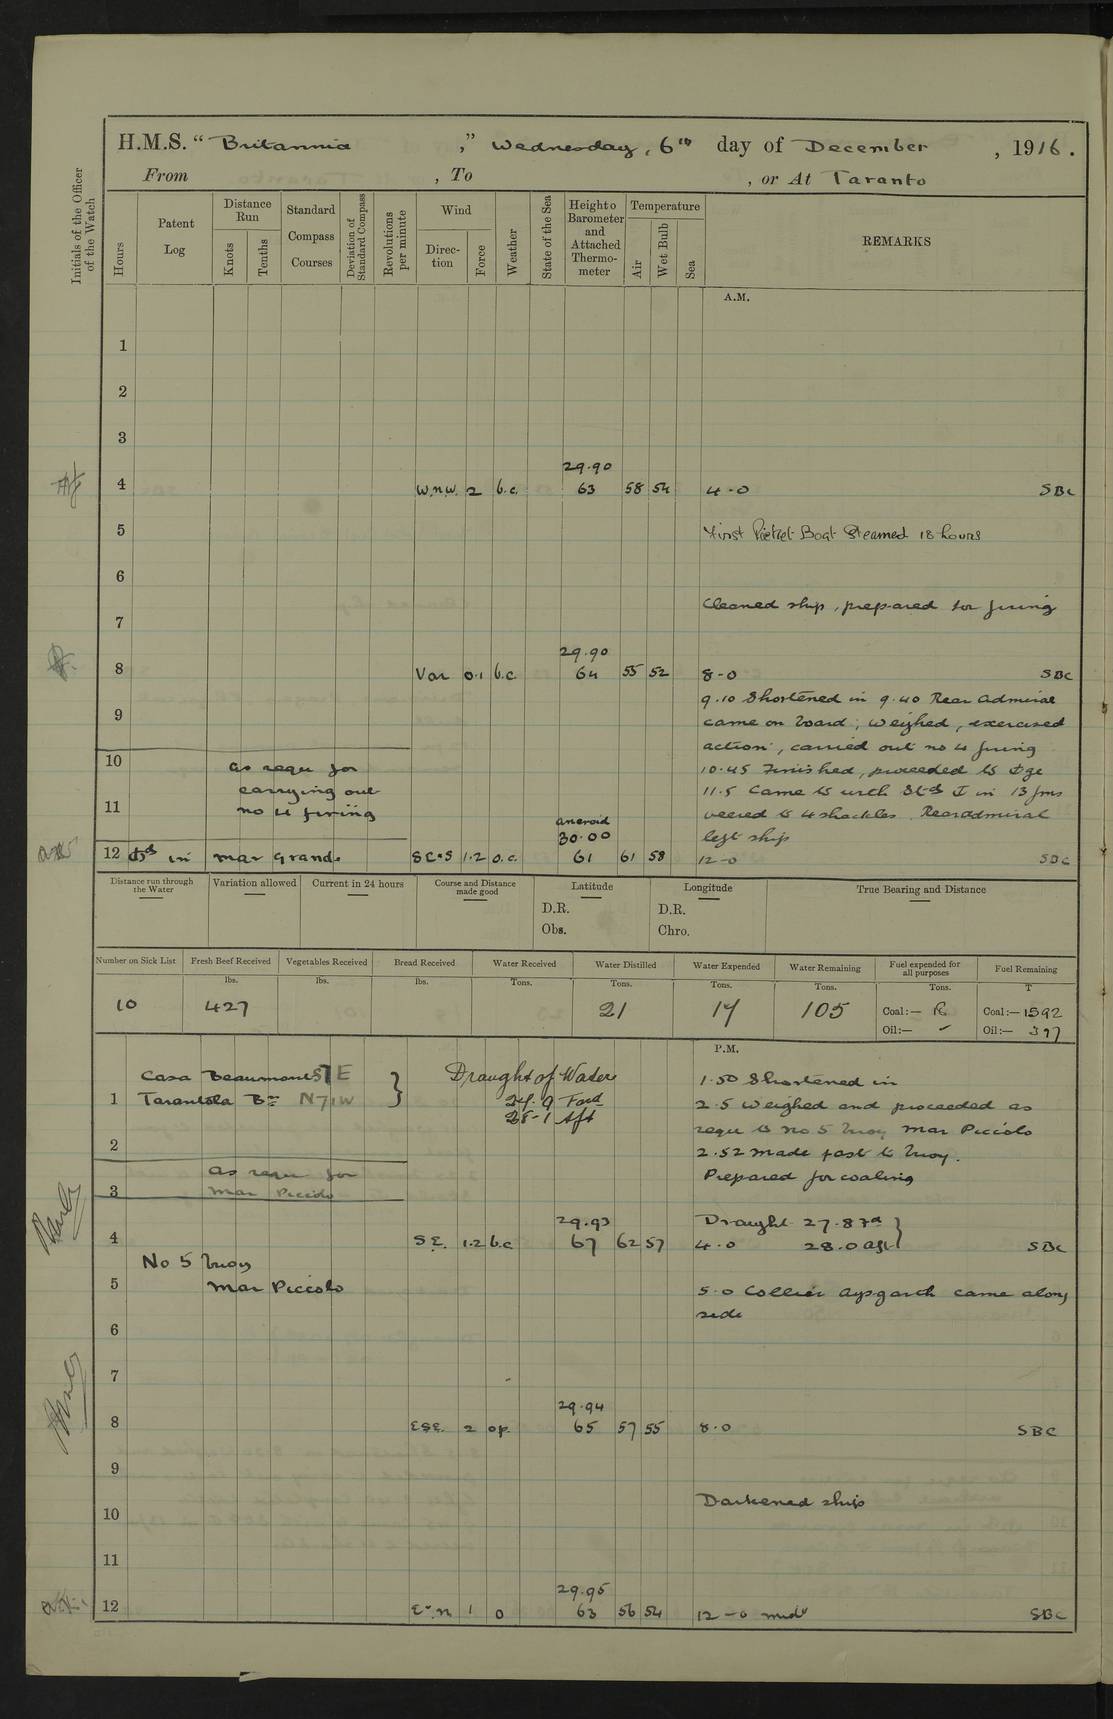 H.M.S. “ Britannia ,” Wednesday, 6th day of December , 1916.
From , To , or At Taranto
Initials of the Officer of the Watch
Hours
Patent Log
Distance Run
Knots
Tenths
Standard Compass Courses
Deviation of Standard Compass
Revolutions per minute
Wind
Direction
Force
Weather
State of the Sea
Height of Barometer and Attached Thermometer
Temperature
Air
Wet Bulb
Sea
REMARKS
A.M.
1
2
3
29.90
4 W.N.W. 2 b.c. 63 58 54 4-0 SBC
5 First Picket Boat Steamed 18 hours
6
Cleaned ship, prepared for firing
7
29.90
8 Var 0.1 b.c. 64 55 52 8-0 SBC
9.10 Shortened in 9.40 Rear Admiral
9 came on board, weighed, exercised
action, carried out no 4 firing
10 as requ for 10.45 Finished, proceeded to
carrying out 11.5 Came to with in 13 fms
11 no 4 firing veered to 4 shackles. Rear admiral
aneroid
30.00 left ship
12 in Mar Grande 1.2 o.c. 61 61 58 12-0 SBC
Distance run through the Water
Variation allowed
Current in 24 hours
Course and Distance made good
Latitude
D.R.
Obs.
Longitude
D.R.
Chro.
True Bearing and Distance
Number on Sick List
Fresh Beef Received
Vegetables Received
Bread Received
Water Received
Water Distilled
Water Expended
Water Remaining
Fuel expended for all purposes
Fuel Remaining
lbs. lbs. lbs. Tons. Tons. Tons. Tons. Tons. T
10 427 21 17 105 Coal:— Coal:— 1592
Oil:— ✓ Oil:— 397
P.M.
Casa Beaumont S7E Draught of Water 1.50 Shortened in
1 Tarantola Bn N71W 24.9 Ford 2.5 weighed and proceeded as
28-1 Aft requ to no 5 buoy Mar Piccolo
2 2.52 made fast to buoy.
as requ for Prepared for coaling
3 Mar Piccolo
29.93 Draught 27.8 Fd
4 S.E. 1.2 b.c 67 62 57 4.0 28.0 aft SBC
No 5 buoy
5 Mar Piccolo 5.0 Collier Aysgarth came along
side
6
7
29.94
8 E.S.E. 2 op. 65 57 55 8.0 SBC
9
Darkened ship
10
11
29.95
12 1 o 63 56 54 12-0 midt SBC